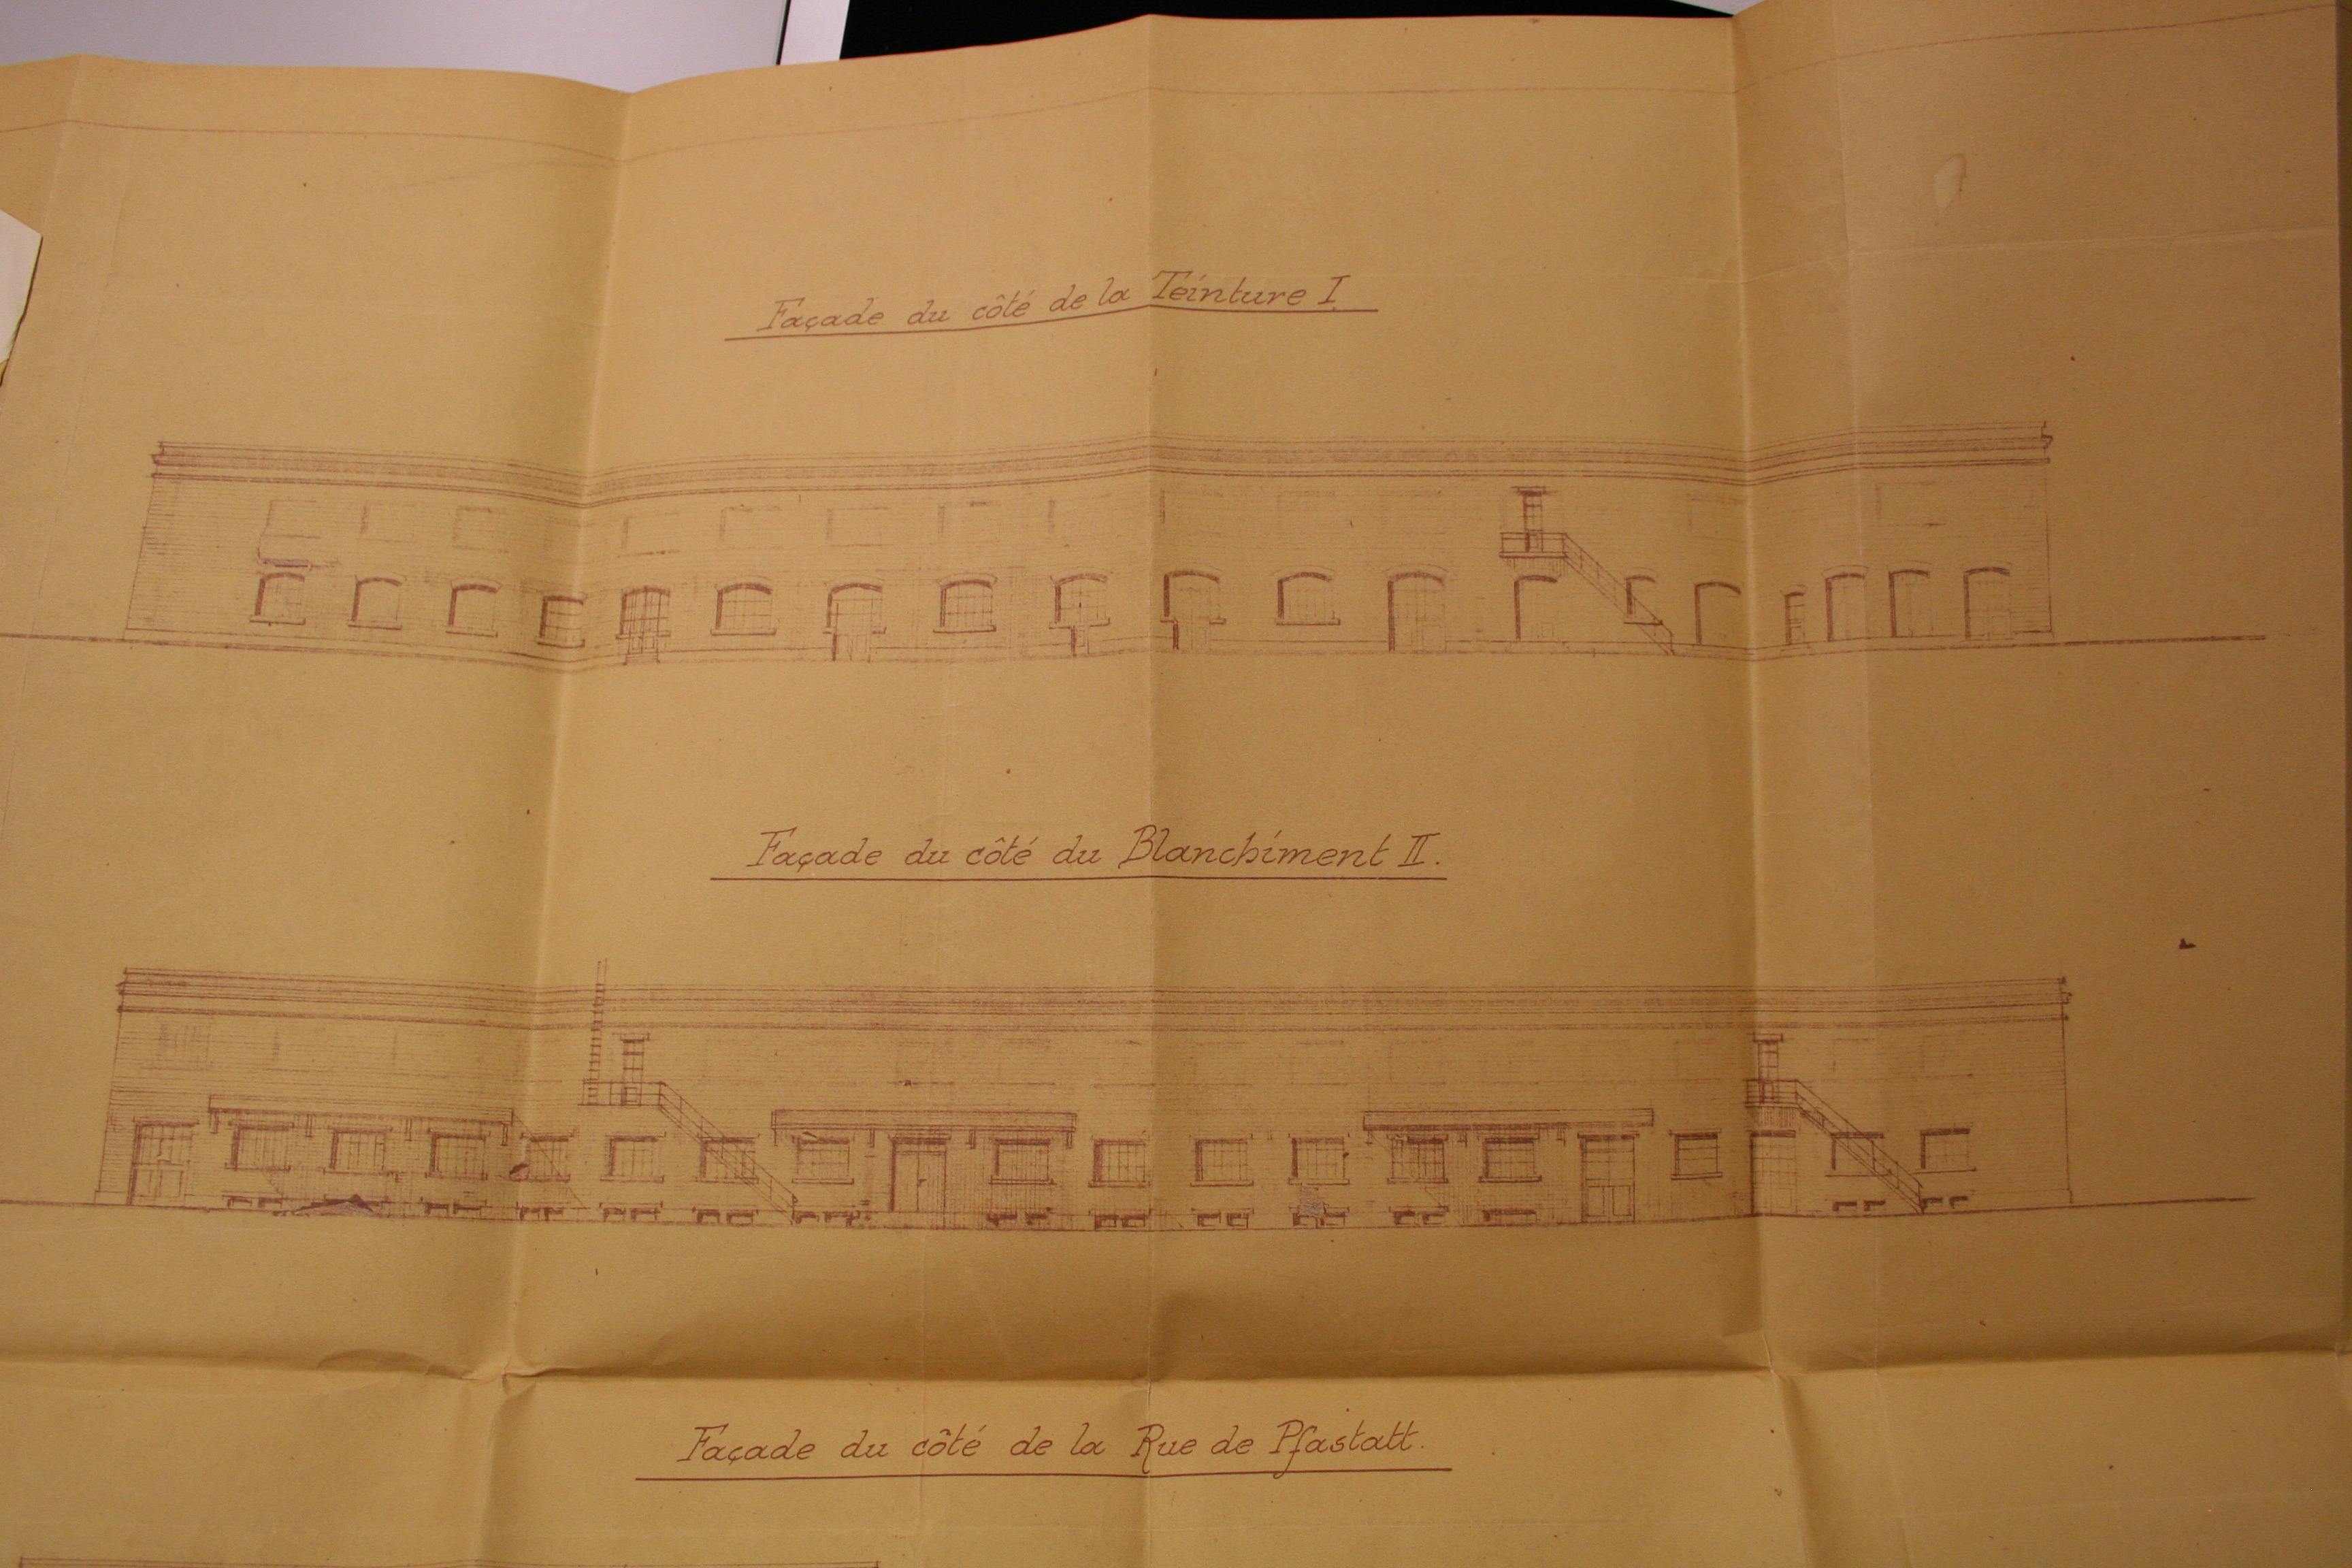 Façade du côté de la Teinture I.
Façade du côté du Blanchiment II.
Façade du côté de la Rue de Pfastatt.